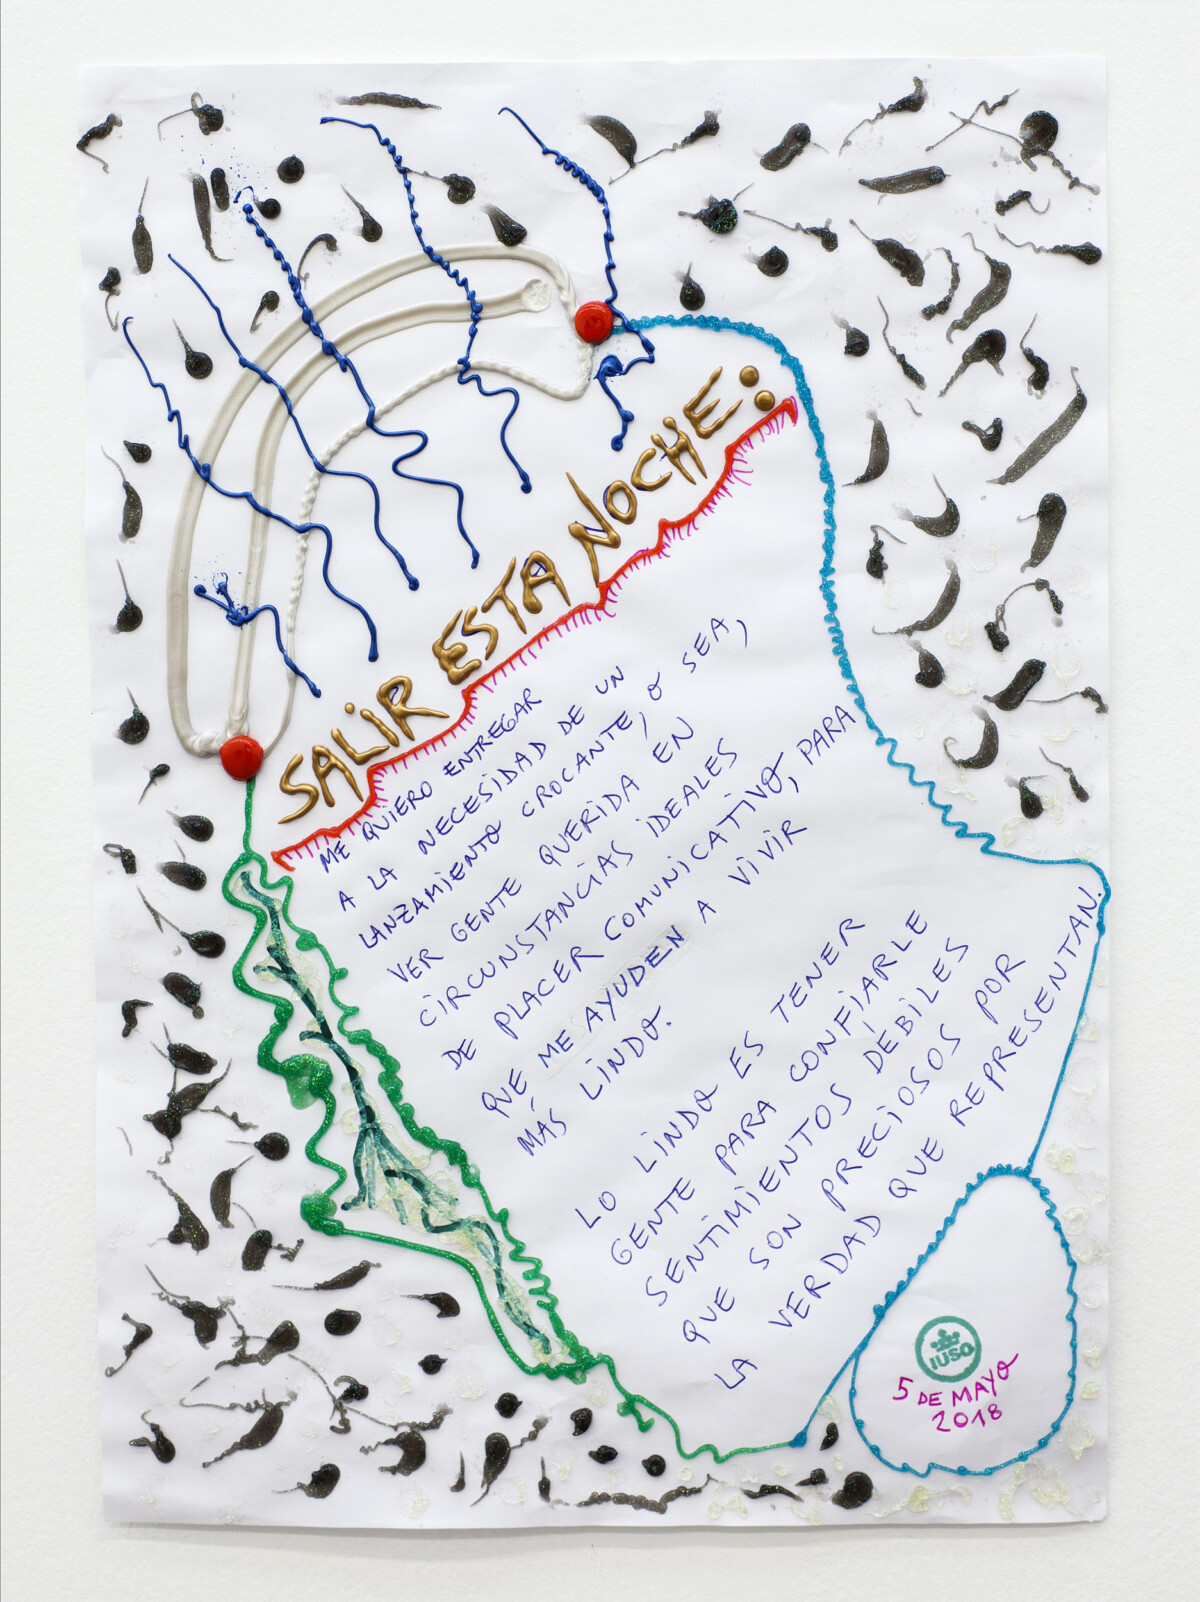 SALIR ESTA NOCHE:
ME QUIERO ENTREGAR
A LA NECESIDAD DE UN
LANZAMIENTO CROCANTE, O SEA,
VER GENTE QUERIDA EN
CIRCUNSTANCIAS IDEALES
DE PLACER COMUNICATIVO, PARA
QUE ME AYUDEN A VIVIR
MÁS LINDO.
LO LINDO ES TENER
GENTE PARA CONFIARLE
SENTIMIENTOS DÉBILES
QUE SON PRECIOSOS POR
LA VERDAD QUE REPRESENTAN.
IUSO
5 DE MAYO
2018